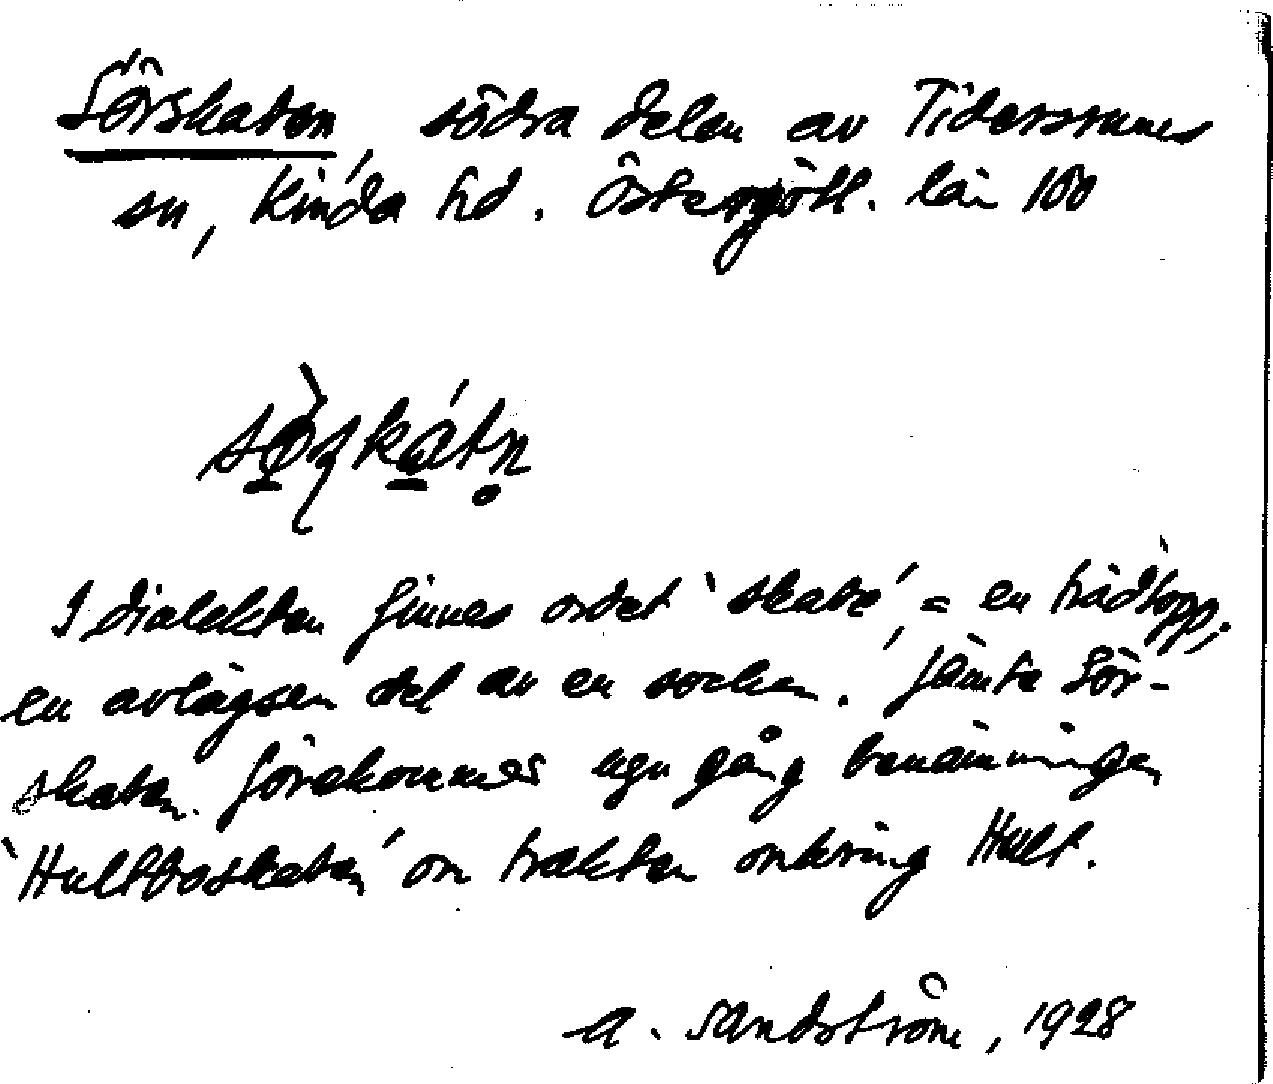 Sörskaten södra delen av Tidersrums
sn, Kinda hd. Östergötl. län 100
I dialekten finnes ordet 'skate', = en trädtopp,
en avlägsen del av en socken. Jämte Sör-
skaten förekommer ngn gång benämningen
'Hultboskaten' om trakten omkring Hult.
A. Sandström, 1928